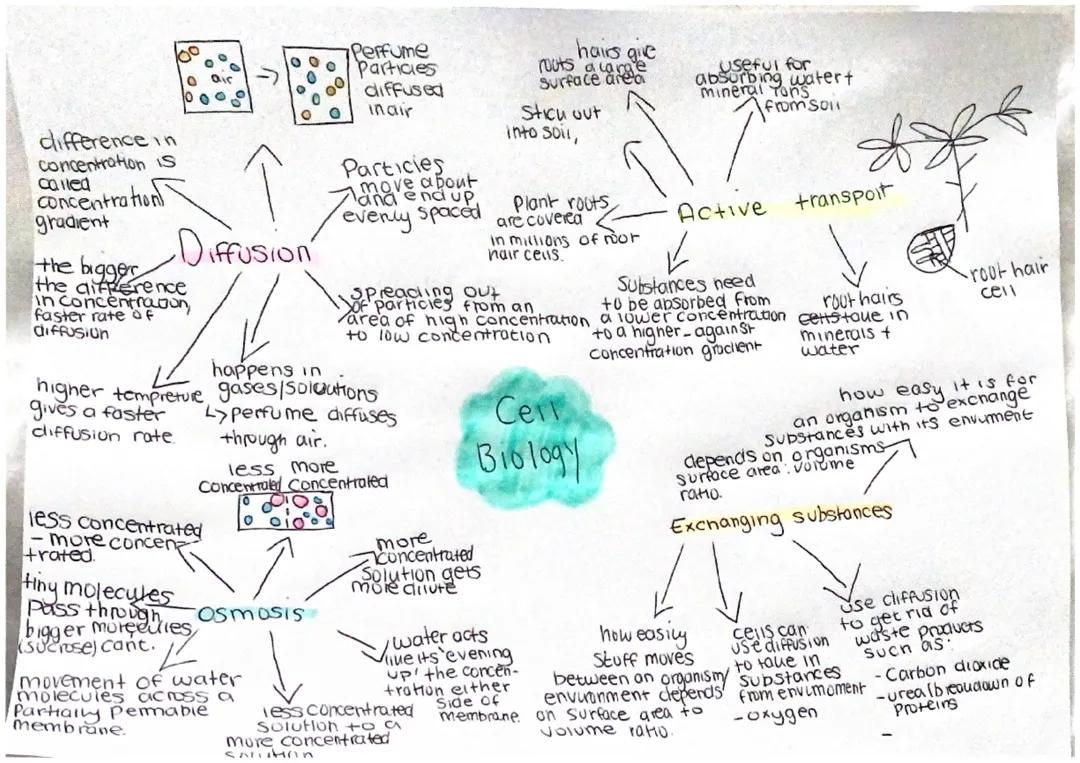 air
Perfume
Particles
diffused
in air
difference in
concentration is
called
concentration
gradient
Particles
move about
and end up
evenly spaced
Diffusion
the bigger
the difference
in concentration,
faster rate of
diffusion
spreading out
of particles from an
area of high concentration
to low concentration
higher tempreture
gives a faster
diffusion rate.
happens in
gases/solutions
↳ perfume diffuses
through air.
hairs give
roots a large
surface area
Stick out
into soil,
useful for
absorbing water +
mineral ions
from soil
Plant roots
are covered
in millions of root
hair cells.
Active transport
Substances need
to be absorbed from
a lower concentration
to a higher - against
concentration gradient
root hairs
cells take in
minerals +
water
root hair
cell
Cell
Biology
less more
concentrated concentrated
less concentrated
- more concen-
trated.
tiny molecules
Pass through
bigger molecules
(sucrose) cant.
osmosis
more
concentrated
solution gets
more dilute
movement of water
molecules across a
Partially Permable
membrane.
less concentrated
solution to a
more concentrated
solution
water acts
like its 'evening
up' the concen-
tration either
side of
membrane.
how easy it is for
an organism to exchange
substances with its envirment
depends on organisms
surface area : volume
ratio.
Exchanging substances
how easily
stuff moves
between an organism/
environment depends
on surface area to
volume ratio.
cells can
use diffusion
to take in
substances
from envirnoment
- oxygen
use diffusion
to get rid of
waste products
such as:
- Carbon dioxide
- urea (breakdown of
proteins
-